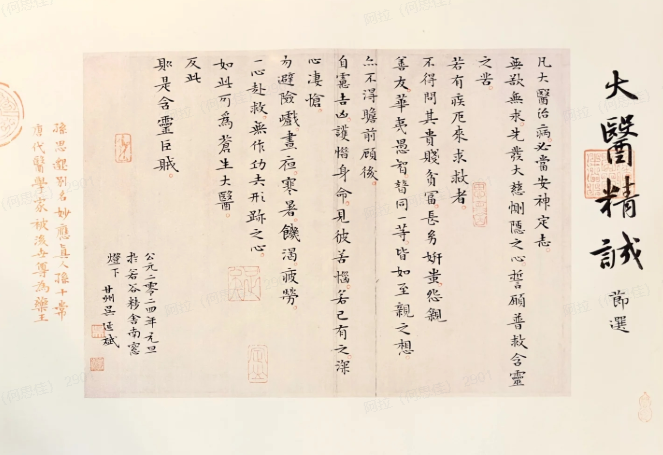 大醫精誠
節選
凡大醫治病必當安神定志。
無欲無求。先發大慈惻隱之心誓願普救含靈
之苦。
若有疾厄來求救者。
不得問其貴賤貧富。長幼妍蚩。怨親
善友。華夷愚智普同一等。皆如至親之想
亦不得瞻前顧後。
自慮吉凶護惜身命。見彼苦惱。若己有之深
心悽愴
勿避險巇晝夜寒暑。饑渴疲勞。
一心赴救無作功夫形跡之心。
如此可為蒼生大醫。
反此
則是含靈巨賊。
公元二零二四年元旦
若谷移舍南窗
燈下
孫思邈別名妙應真人孫十常
唐代醫學家被後世尊為藥王